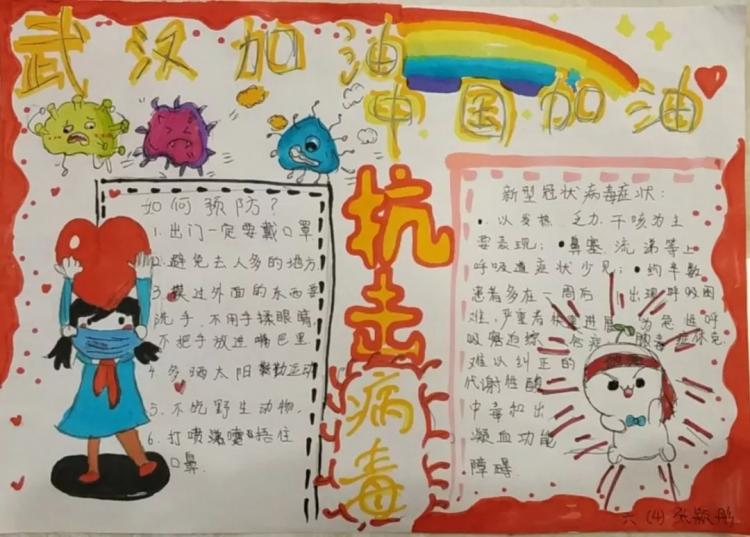 武汉加油
中国加油
抗击
病毒
如何预防?
1. 出门一定要戴口罩
2. 避免去人多的地方
3. 摸过外面的东西要
洗手.不用手揉眼睛,
不把手放进嘴巴里
4. 多晒太阳 勤运动
5. 不吃野生动物.
6. 打喷嚏 捂住
口鼻.
新型冠状病毒症状:
•以发热.乏力.干咳为主
要表现; •鼻塞.流涕等上
呼吸道症状少见; •约半数
患者多在一周后 出现呼吸困
难,严重者快速进展 为急性呼
吸窘迫综 脓毒症休克
难以纠正的
代谢性酸
中毒和出
凝血功能
障碍.
六(4)张颖彤